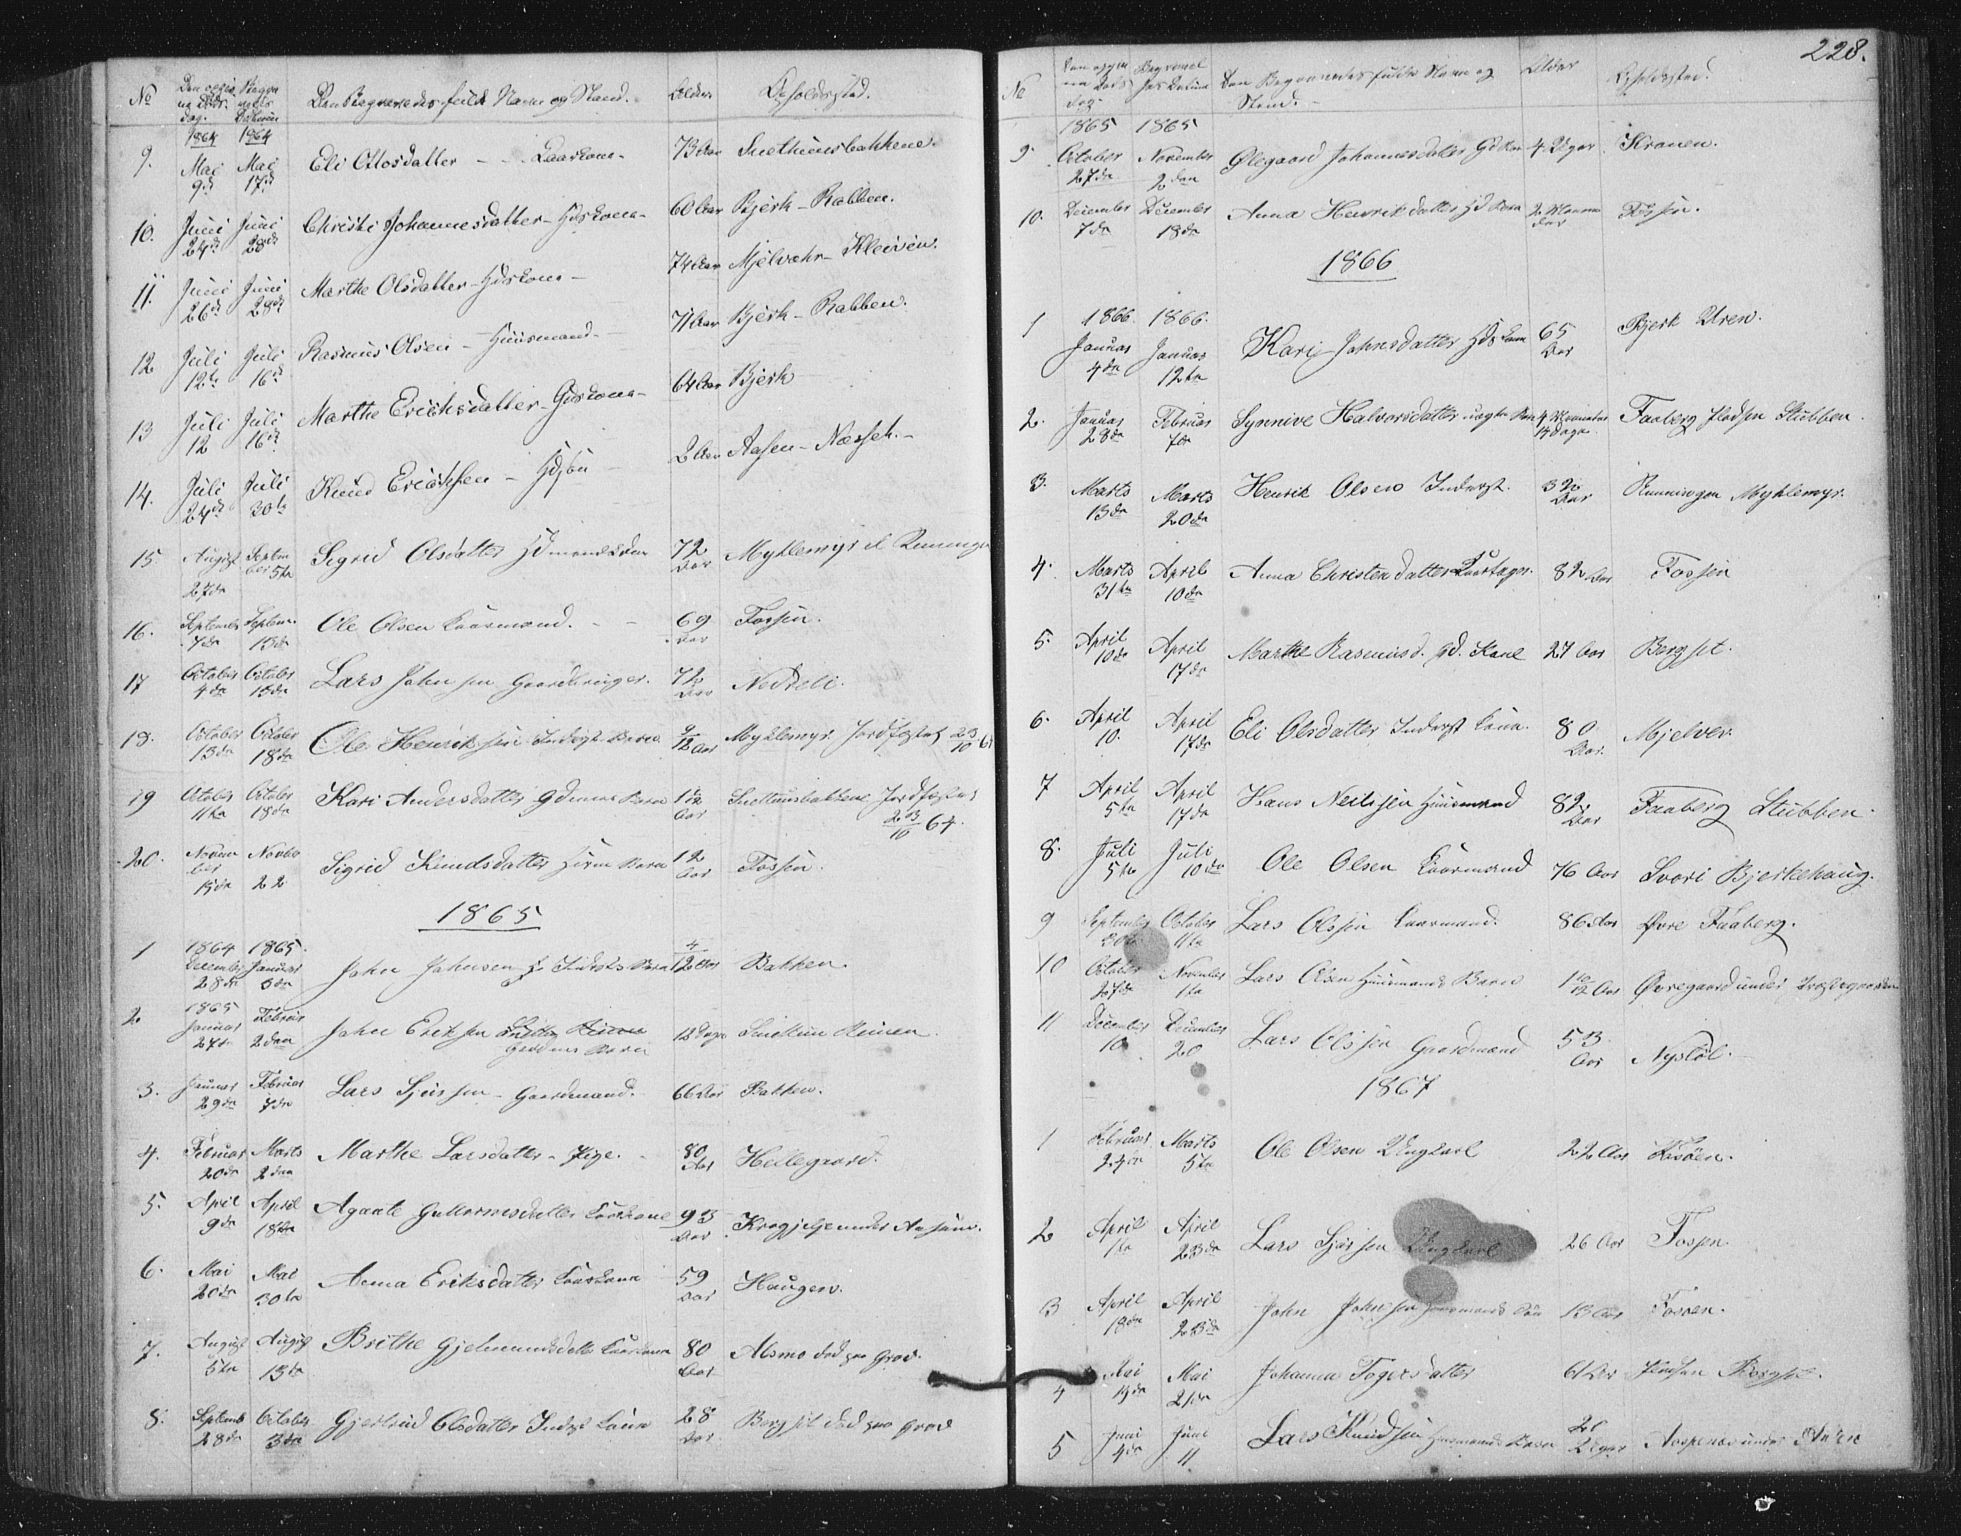 228.
No
Den Begravedes fulde Navn og Stand.
Alder.
Opholdssted.
1864 1864
9. Mai 9de Mai 17de Eli Ottosdatter - Kaarkone - 73 Aar Snethunsbakkene.
10. Juni 24de Juni 28de Christi Johannesdatter - Hdskone - 60 Aar Bjerk - Rabben.
11. Juni 26de Juni 28de Marthe Olsdatter - Hdskone - 74 Aar Mjelvæhr - Kleiven.
12 Juli 12te Juli 16de Rasmus Olsen - Huusmand - 71 Aar Bjerk - Rabben.
13 Juli 12 Juli 16de Marthe Erichsdatter - Gdskone - 64 Aar Bjerk
14. Juli 24de Juli 30te Knud Erichsen - 2 Aar Aasen - Næsset.
15. August 27de September 5te Sigrid Olsdatter 72 Aar Myklemyr
16. September 7de September 13de Ole Olsen Kaarmand. 69 Aar Fossen.
17 October 4de October 18de Lars Johnsen Gaardbruger. 72 Aar Nedreli.
18. October 13de October 18de Ole Henriksen Inderst Barn 9/12 Aar Myklemyr Jordfæstet 23/10 64
19 October 11te October 18de Kari Andersdatter Gdmans Barn Aar Snethunsbakkene Jordfæstet
23/10 64.
20. November 15de Novbr 22 Sigrid Knudsdatter Barn 12 Aar Fossen.
1865
1 1864 December 28de 1865. Januar 3de John Johnsen Inderst Barn 4/12 Aar Bakken.
2 1865 Januar 27de Februar 2den John Eriksen
Gdmans Barn 12 Dage
3. Januar 29de Februar 7de Lars Sjursen - Gaardmand. 66 Aar Bakken.
4. Februar 20de Marts 2den Marthe Larsdatter - Pige. 80 Aar Hellegaard.
5. April 9de April 18de Agaate Guttormesdatter Kaarkone 93 Aar Krogjelse under Aasum.
6. Mai 20de Mai 30te Anna Eriksdatter Kaarkone 59 Aar Haugen.
7. August 5te August 15te Brithe Gjelmundsdatter Kaarkone 80 Aar Alsmo
8. September 28de October 3de Gjertrud Olsdatter Inderst Kone 28 Aar Bergset
No
Den Begravedes fulde Navn og Stand. -
Alder
Opholdssted.
1865 1865
9. October 27de November 2den Ølegaard Johannesdatter 4 Uger Kronen.
10. December 7de December 18de Anna Henrikdatter Barn 2 Aar Fossen.
1866
1866. 1866.
1 Januar 4de Januar 12te Kari Johnsdatter Hds Kone 65 Aar Bjerk Uren.
2. Januar 28de Februar 7de Synneve Halvorsdatter uægte Barn 4 Maaneder Dage Faaberg Pladsen Stubben.
3. Marts 13de Marts 20de Henrik Olsen Inderst. 32 Aar Myklemyr.
4. Marts 31te April 10de Anna Christendatter 82 Aar Fossen
5. April 10de April 17de Marthe Rasmusd. Gd. Kone 27 Aar Bergset.
6. April 10. April 17de Eli Olsdatter Inderst Kone. 80 Aar. Mjelver
7 April 5te April 17de Hans Neilsen Huusmand 82 Aar Faaberg Stubben.
8. Juli 5te Juli 10de Ole Olsen Kaarmand 76 Aar Svori Bjerkehaug.
9 September October 11te Lars Olsen Kaarmand. 86 Aar Øvre Faaberg.
10 October 27de November 1te Lars Olsen Huusmands Barn 1 10/12 Aar Øvregaard under
11 December 10 December 20 Lars Olssen Gaardmand 53 Aar Nystøl. -
1867
1 Februar 24de Marts 5te Ole Olsen Ungkarl 22 Aar
2 April 1te April 23de Lars Sjursen Ungkarl 26 Aar Fossen
3 April 18de April 23de John Johnsen 13 Aar Fossen.
4 Mai Mai 21de Johanna Togersdatter 61 Aar Pladsen Bergset.
5 Juni 4de Juni 11 Lars Knudsen Huusmands Barn Uger